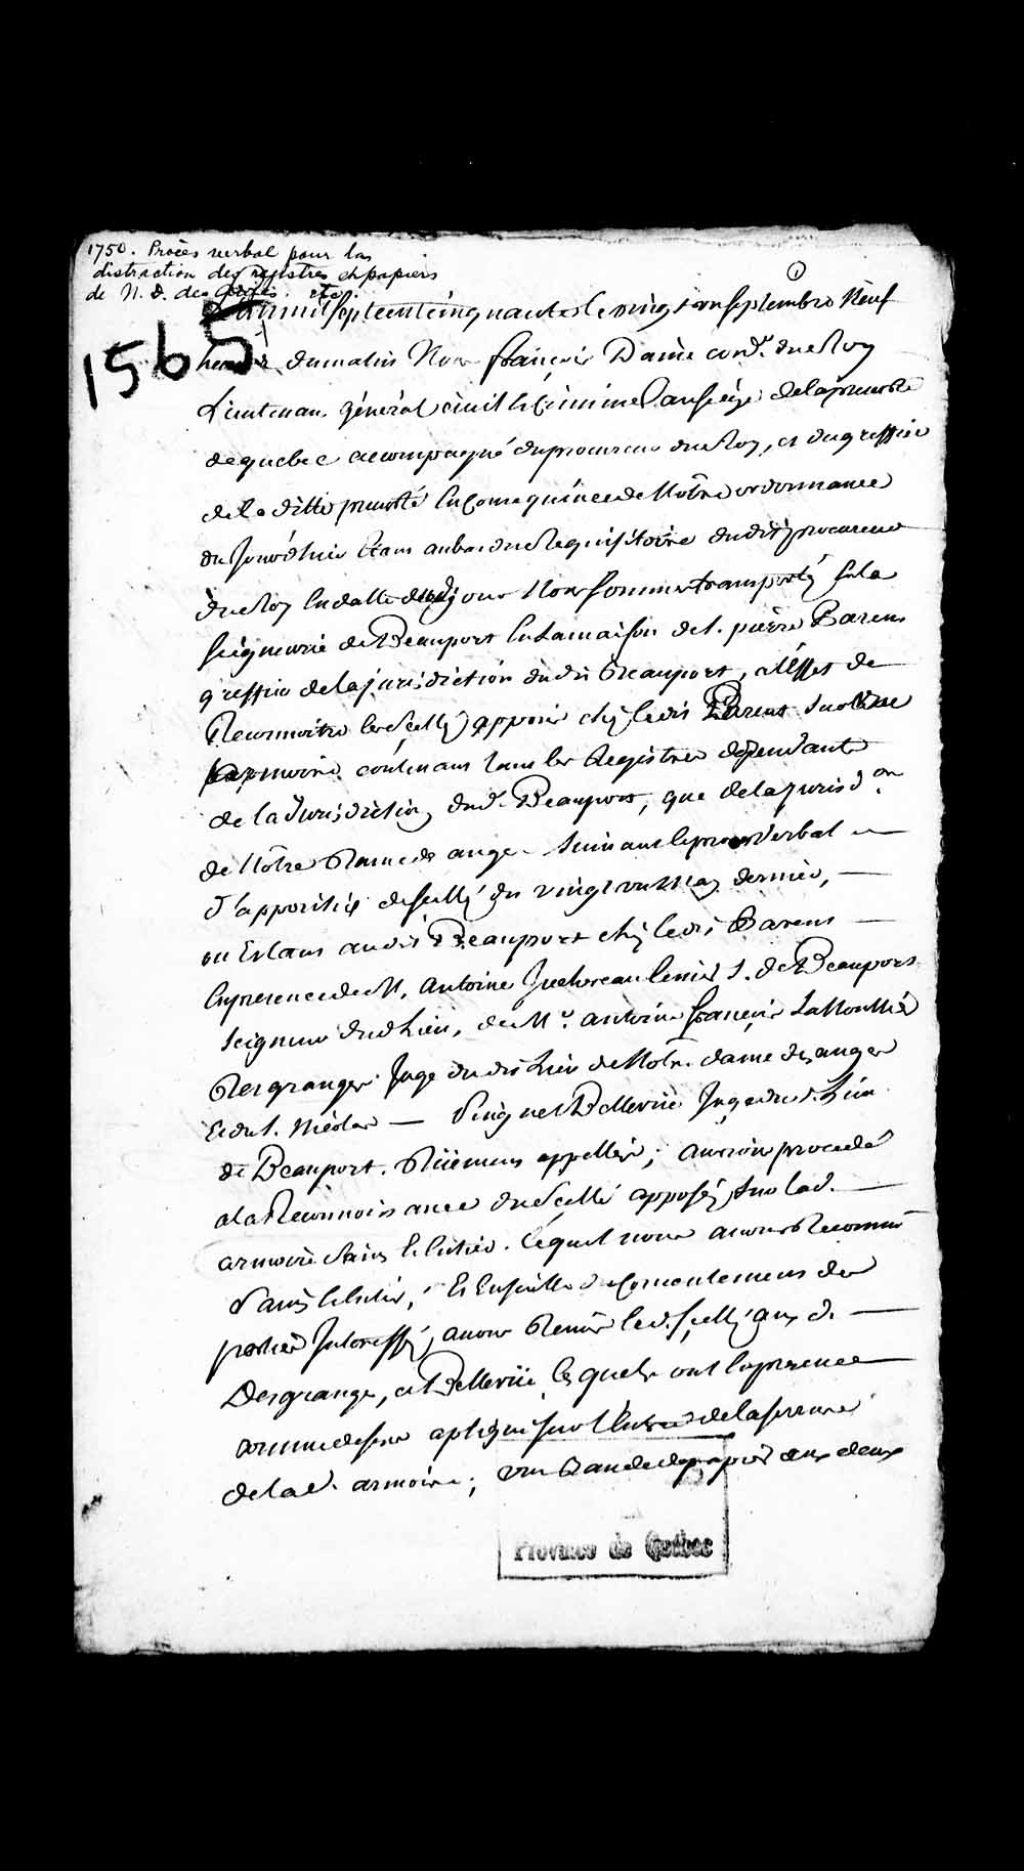 1750. Procès verbal pour la
distraction des registres et papiers
de N. D. des Anges. etc.
1
1565
L'an mil sept cent cinquante le vingt un septembre Neuf
heures du matin Nous françois Daine cons.r du Roy
Lieutenant général civil & criminel au siège de la prevosté
de quebec accompagné du procureur du Roy, et du greffier
de la ditte prevosté En Consequence de Nôtre ordonnance
du Jour d'hier Etant au bas du Requisitoire du dit procureur
du Roy En datte du jour Nous sommes transportés sur la
seigneurie de Beauport En la maison de S. pierre Parent
greffier de la jurisdiction du dit Beauport, a l'effet de
Reconnoitre les scellés apposés chez le dit Parent sur une
armoire contenant tous les Registres dependants
de la Jurisdiction dud. Beauport, que de la Jurisd.on
de Nôtre Dame des anges suivant le procès verbal
d'apposition de scellé du vingt un may dernier,
ou Etans au dit Beauport chez le dit Parent
En presence de M. Antoine Juchereau Ecuier S. de Beauport
seigneur dud. Lieu, de M.e antoine françois
Desgranges Juge du dit Lieu de Notre dame des anges
Et du S. Nicolas Pinguet Bellevüe Juge dud. Lieu
de Beauport. appellés; avons procedé
a la Reconnoissance du scellé apposé sur lad.
armoire sain & Entier. lequel nous avons Reconnu
sain & Entier, & Ensuitte du consentement des
parties Interessés, avons Remis led. scellé aux d.
Desgranges, et Bellevüe lesquels ont En presence
comme dessus apliqué sur l'Entrée de la serrure
de lad. armoire; une Bande de papier aux deux
Province de Québec